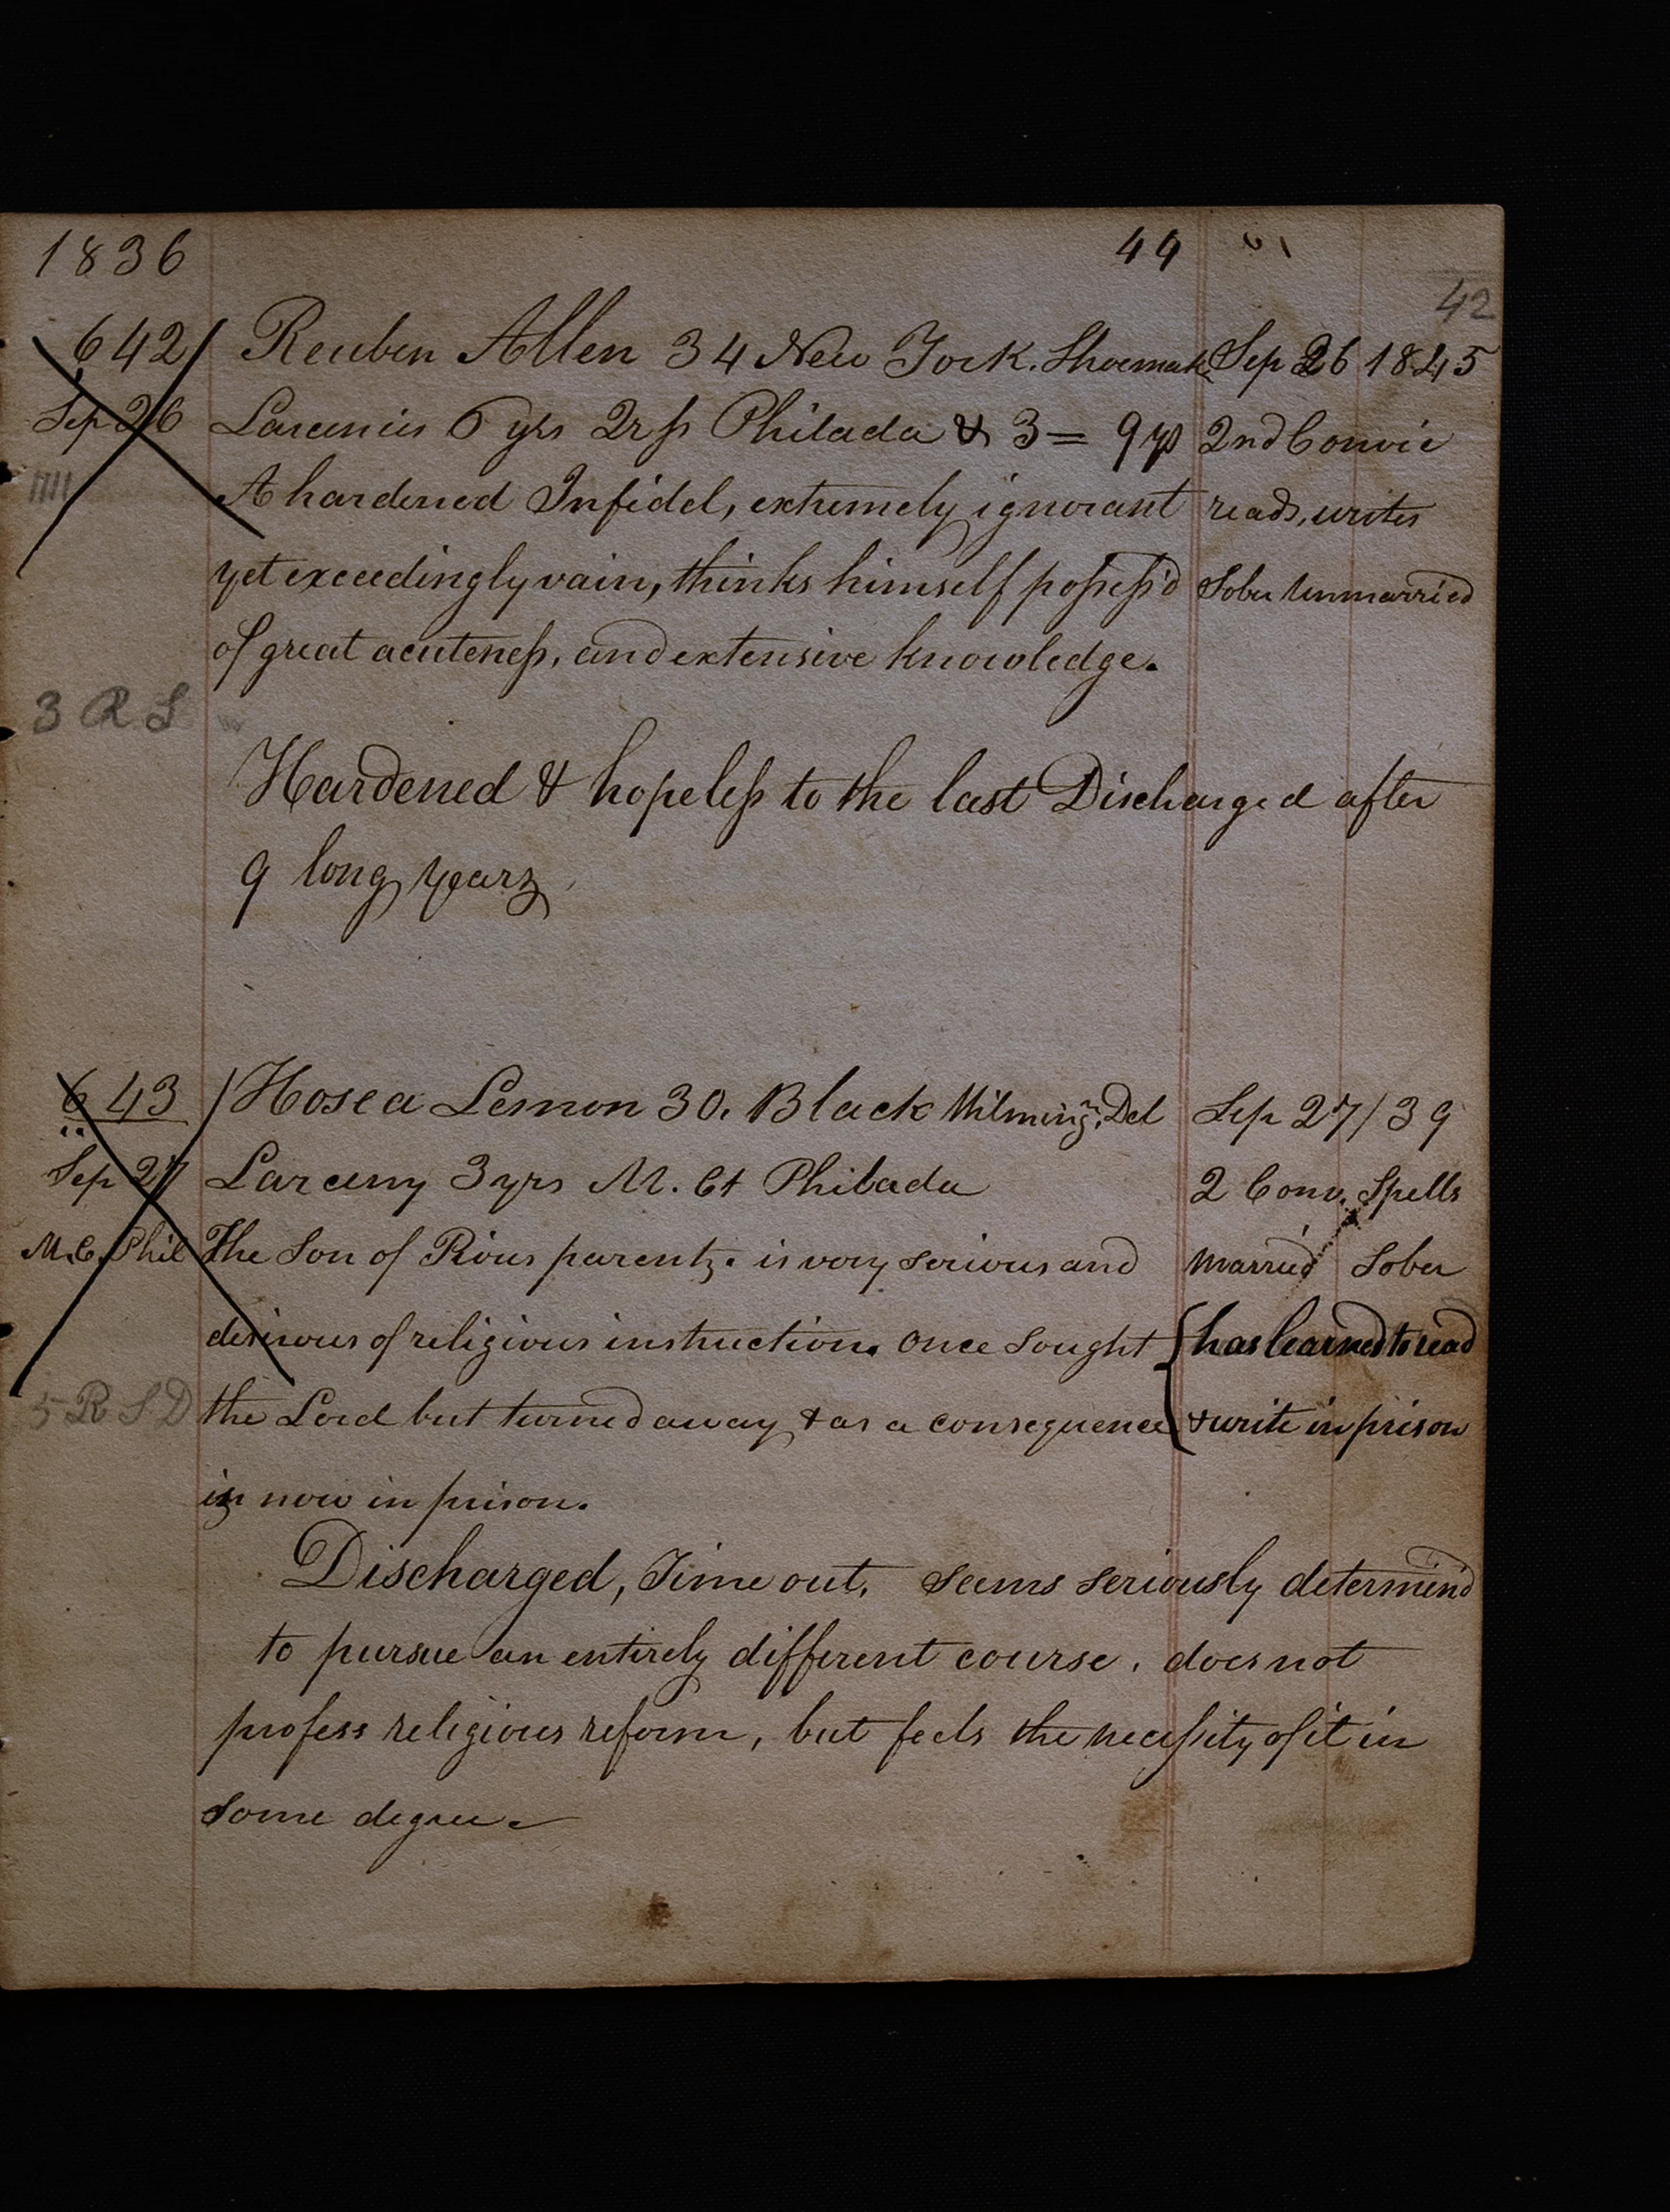 1836 44
42
642 Reuben Allen 34 New York. Shoemak. Sep 26 1845
Sep 26 Larcenies 6 yrs Philada & 3 = 9 ys 2nd Convic
A hardened Infidel, extremely ignorant reads, writes
yet exceedingly vain, thinks himself possess'd Sober Unmarried
of great acuteness, and extensive knowledge.
3 R S
Hardened & hopeless to the last Discharged after
9 long years
643 Hosea Lemon 30. Black Wilmingn. Del Sep 27/39
Sep 27 Larceny 3 yrs M. Ct Philada 2 Conv. Spells
M.C. Phil The Son of Pious parents. is very serious and married Sober
desirous of religious instruction. Once sought has learned to read
5 R S D the Lord but turned away & as a consequence & write in prison
is now in prison.
Discharged, Time out, seems seriously determin'd
to pursue an entirely different course. does not
profess religious reform, but feels the necessity of it in
some degree.